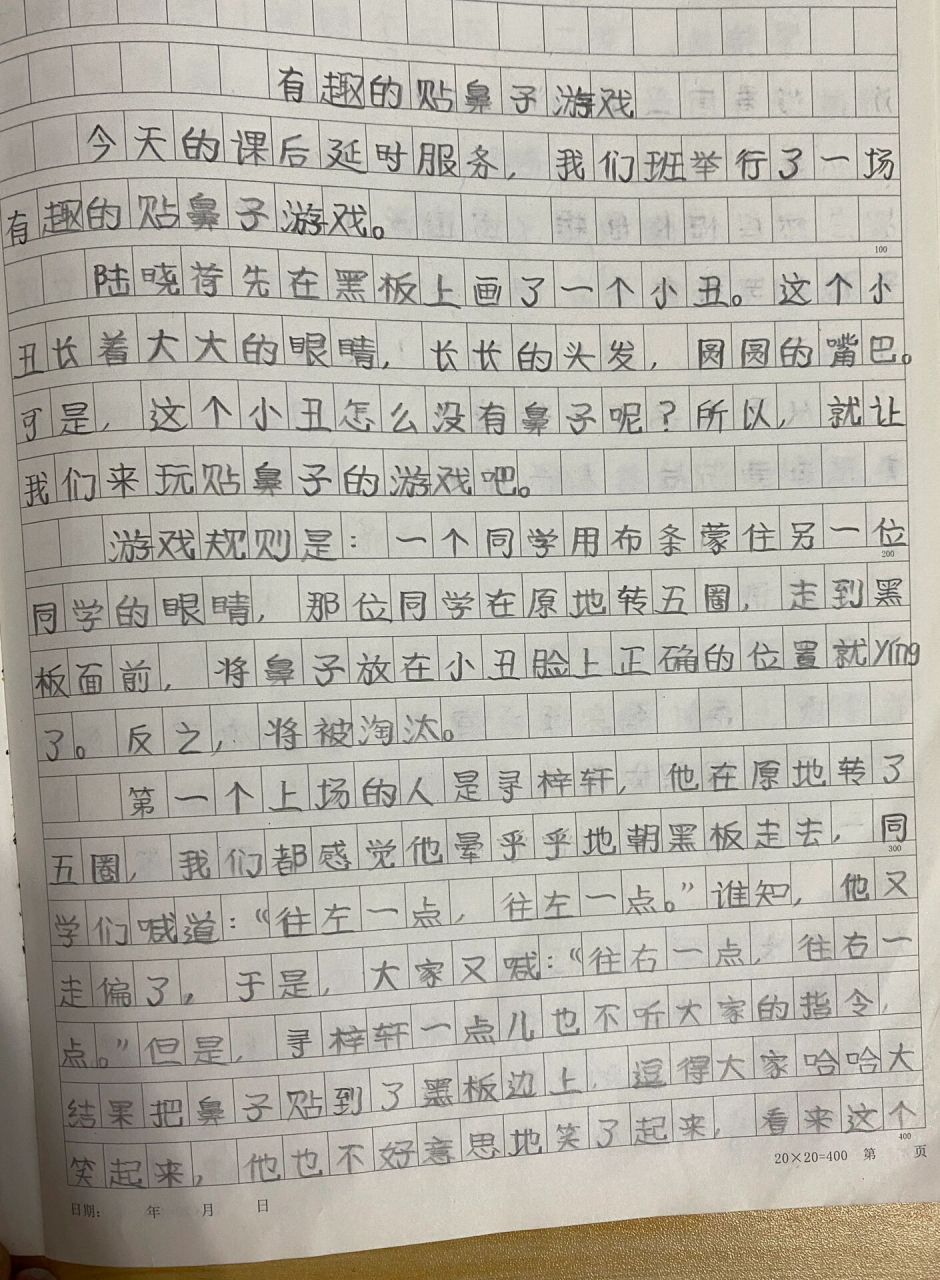 有趣的贴鼻子游戏
今天的课后延时服务，我们班举行了一场
有趣的贴鼻子游戏。
100
陆晓荷先在黑板上画了一个小丑。这个小
丑长着大大的眼睛，长长的头发，圆圆的嘴巴。
可是，这个小丑怎么没有鼻子呢？所以，就让
我们来玩贴鼻子的游戏吧。
游戏规则是：一个同学用布条蒙住另一位
200
同学的眼睛，那位同学在原地转五圈，走到黑
板面前，将鼻子放在小丑脸上正确的位置就yíng
了。反之，将被淘汰。
第一个上场的人是寻梓轩，他在原地转了
五圈，我们都感觉他晕乎乎地朝黑板走去，同
300
学们喊道：“往左一点，往左一点。”谁知，他又
走偏了，于是，大家又喊：“往右一点，往右一
点。”但是，寻梓轩一点儿也不听大家的指令，
结果把鼻子贴到了黑板边上，逗得大家哈哈大
笑起来，他也不好意思地笑了起来，看来这个
400
20×20=400 第 页
日期： 年 月 日